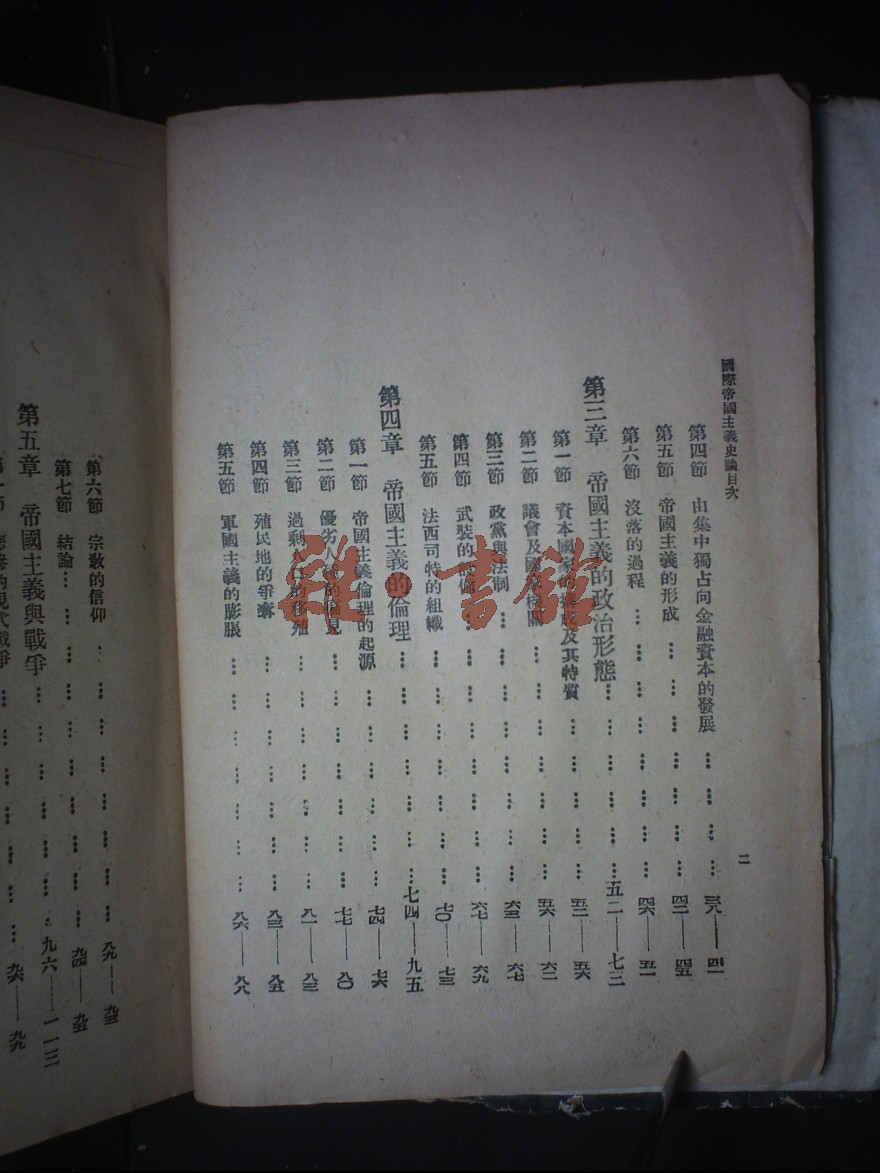 國際帝國主義史論目次
二
第四節 由集中獨占向金融資本的發展 … … … … 三八——四一
第五節 帝國主義的形成 … … … … … … 四二——四五
第六節 沒落的過程 … … … … … … … 四六——五一
第三章 帝國主義的政治形態 … … … … … 五二——七三
第一節 資本國家的 及其特質 … … … … 五二——五六
第二節 議會及國家機關 … … … … … … 五六——六二
第三節 政黨與法制 … … … … … … … 六三——六七
第四節 武裝的 … … … … … … … 六七——六九
第五節 法西司特的組織 … … … … … … 七〇——七三
第四章 帝國主義的倫理 … … … … … … 七四——九五
第一節 帝國主義倫理的起源 … … … … … 七四——七六
第二節 優劣人種的偏見 … … … … … … 七七——八〇
第三節 過剩人口的移殖 … … … … … … 八一——八三
第四節 殖民地的爭奪 … … … … … … … 八三——八五
第五節 軍國主義的膨脹 … … … … … … 八六——八八
第六節 宗教的信仰 … … … … … … … 八九——九三
第七節 結論 … … … … … … … … 九四——九五
第五章 帝國主義與戰爭 … … … … … … 九六——一一三
第一節 的現代戰爭 … … … … … … 九六——九九
雜·書館